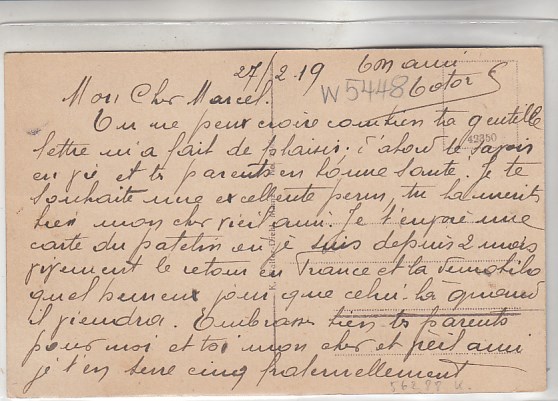 27/2.19
Ton ami
Totor
W5448
42350
Mon Cher Marcel.
Tu ne peux croire combien ta gentille
lettre m'a fait de plaisir. d'abord te savoir
en vie et tes parents en bonne sante. Je te
souhaite une excellente perm, tu la merites
bien mon cher vieil ami. Je t'envoie une
carte du patelin ou je suis depuis 2 mois
vivement le retour en France et la Demobilo
quel heureux jour que celui-là quand
il viendra. Embrasse bien tes parents
pour moi et toi mon cher et vieil ami
je t'en serre cinq fraternellement